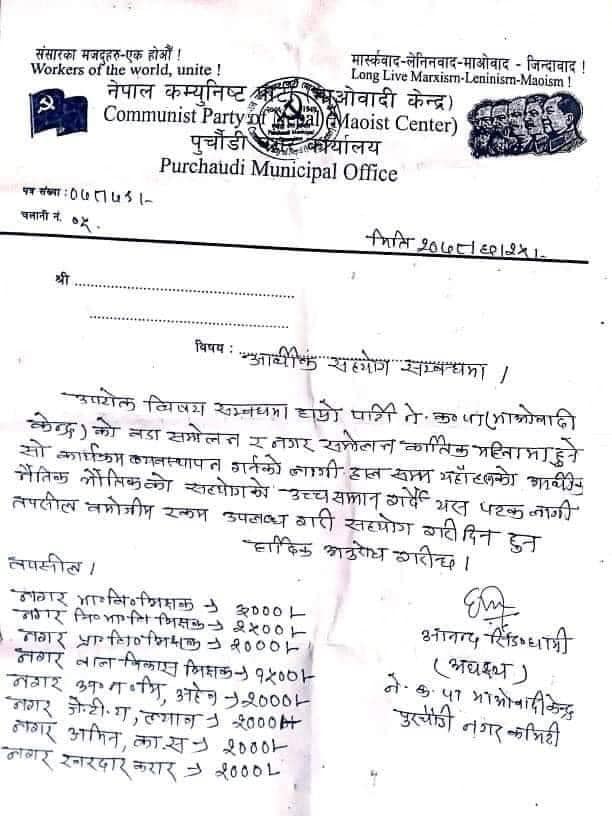 संसारका मजदुहरु-एक होऔं !
Workers of the world, unite !
मार्क्सवाद-लेनिनवाद-माओवाद - जिन्दावाद !
Long Live Marxism-Leninism-Maoism !
नेपाल कम्युनिष्ट पार्टी (माओवादी केन्द्र)
Communist Party of Nepal (Maoist Center)
पुर्चौडी नगर कार्यालय
Purchaudi Municipal Office
पत्र संख्या : ०७८।७९।-
चलानी नं. ०५.
मिति २०७८।६।२५।-
श्री
विषय : आर्थीक सहयोग सम्बन्धमा ।
उपरोक्त विषय सम्बन्धमा हाम्रो पार्टि ने. क. पा (माओवादी
केन्द्र) को वडा सम्मेलन र नगर सम्मेलन कार्तिक महिनामा हुने
सो कार्यक्रम व्यवस्थापन गर्नको लागी हाल सम्म यहाँहरुको आर्थीक
नैतिक भौतिकको सहयोगको उच्च सम्मान गर्दै यस पटक लागी
तपसील बमोजीम रकम उपलब्ध गरी सहयोग गरी दिन हुन
हार्दिक अनुरोध गरीन्छ ।
तपसील ।
नगर मा॰वि॰शिक्षक → ३०००।-
नगर नि॰मा॰वि शिक्षक → २५००।-
नगर प्रा॰वि॰शिक्षक → २०००।-
नगर बाल विकास शिक्षक → १५००।-
नगर अ॰न॰मि, अहेव → २०००।-
नगर जे.टी.ए, → २०००।-
नगर अमिन, का.स → २०००।-
नगर करार → २०००।-
आनन्द सिंह धामी
(अध्यक्ष)
ने. क. पा माओवादी केन्द्र
पुरचौडी नगर कमिटी